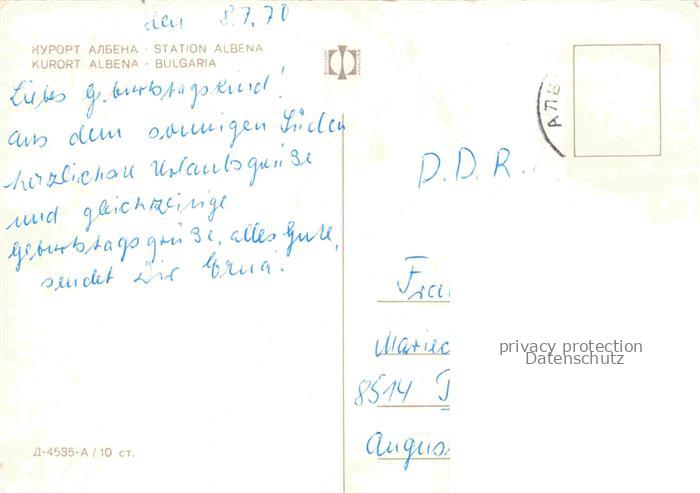 den 8.7.70
КУРОРТ АЛБЕНА · STATION ALBENA
KURORT ALBENA · BULGARIA
Liebes Geburtstagskind!
aus dem sonnigen Süden
herzlichste Urlaubsgrüße
und gleichzeitige
Geburtstagsgrüße, alles Gute,
sendet Dir Erna.
Д-4535-А / 10 ст.
АЛБ
D.D.R.
Frau
8514
privacy protection
Datenschutz